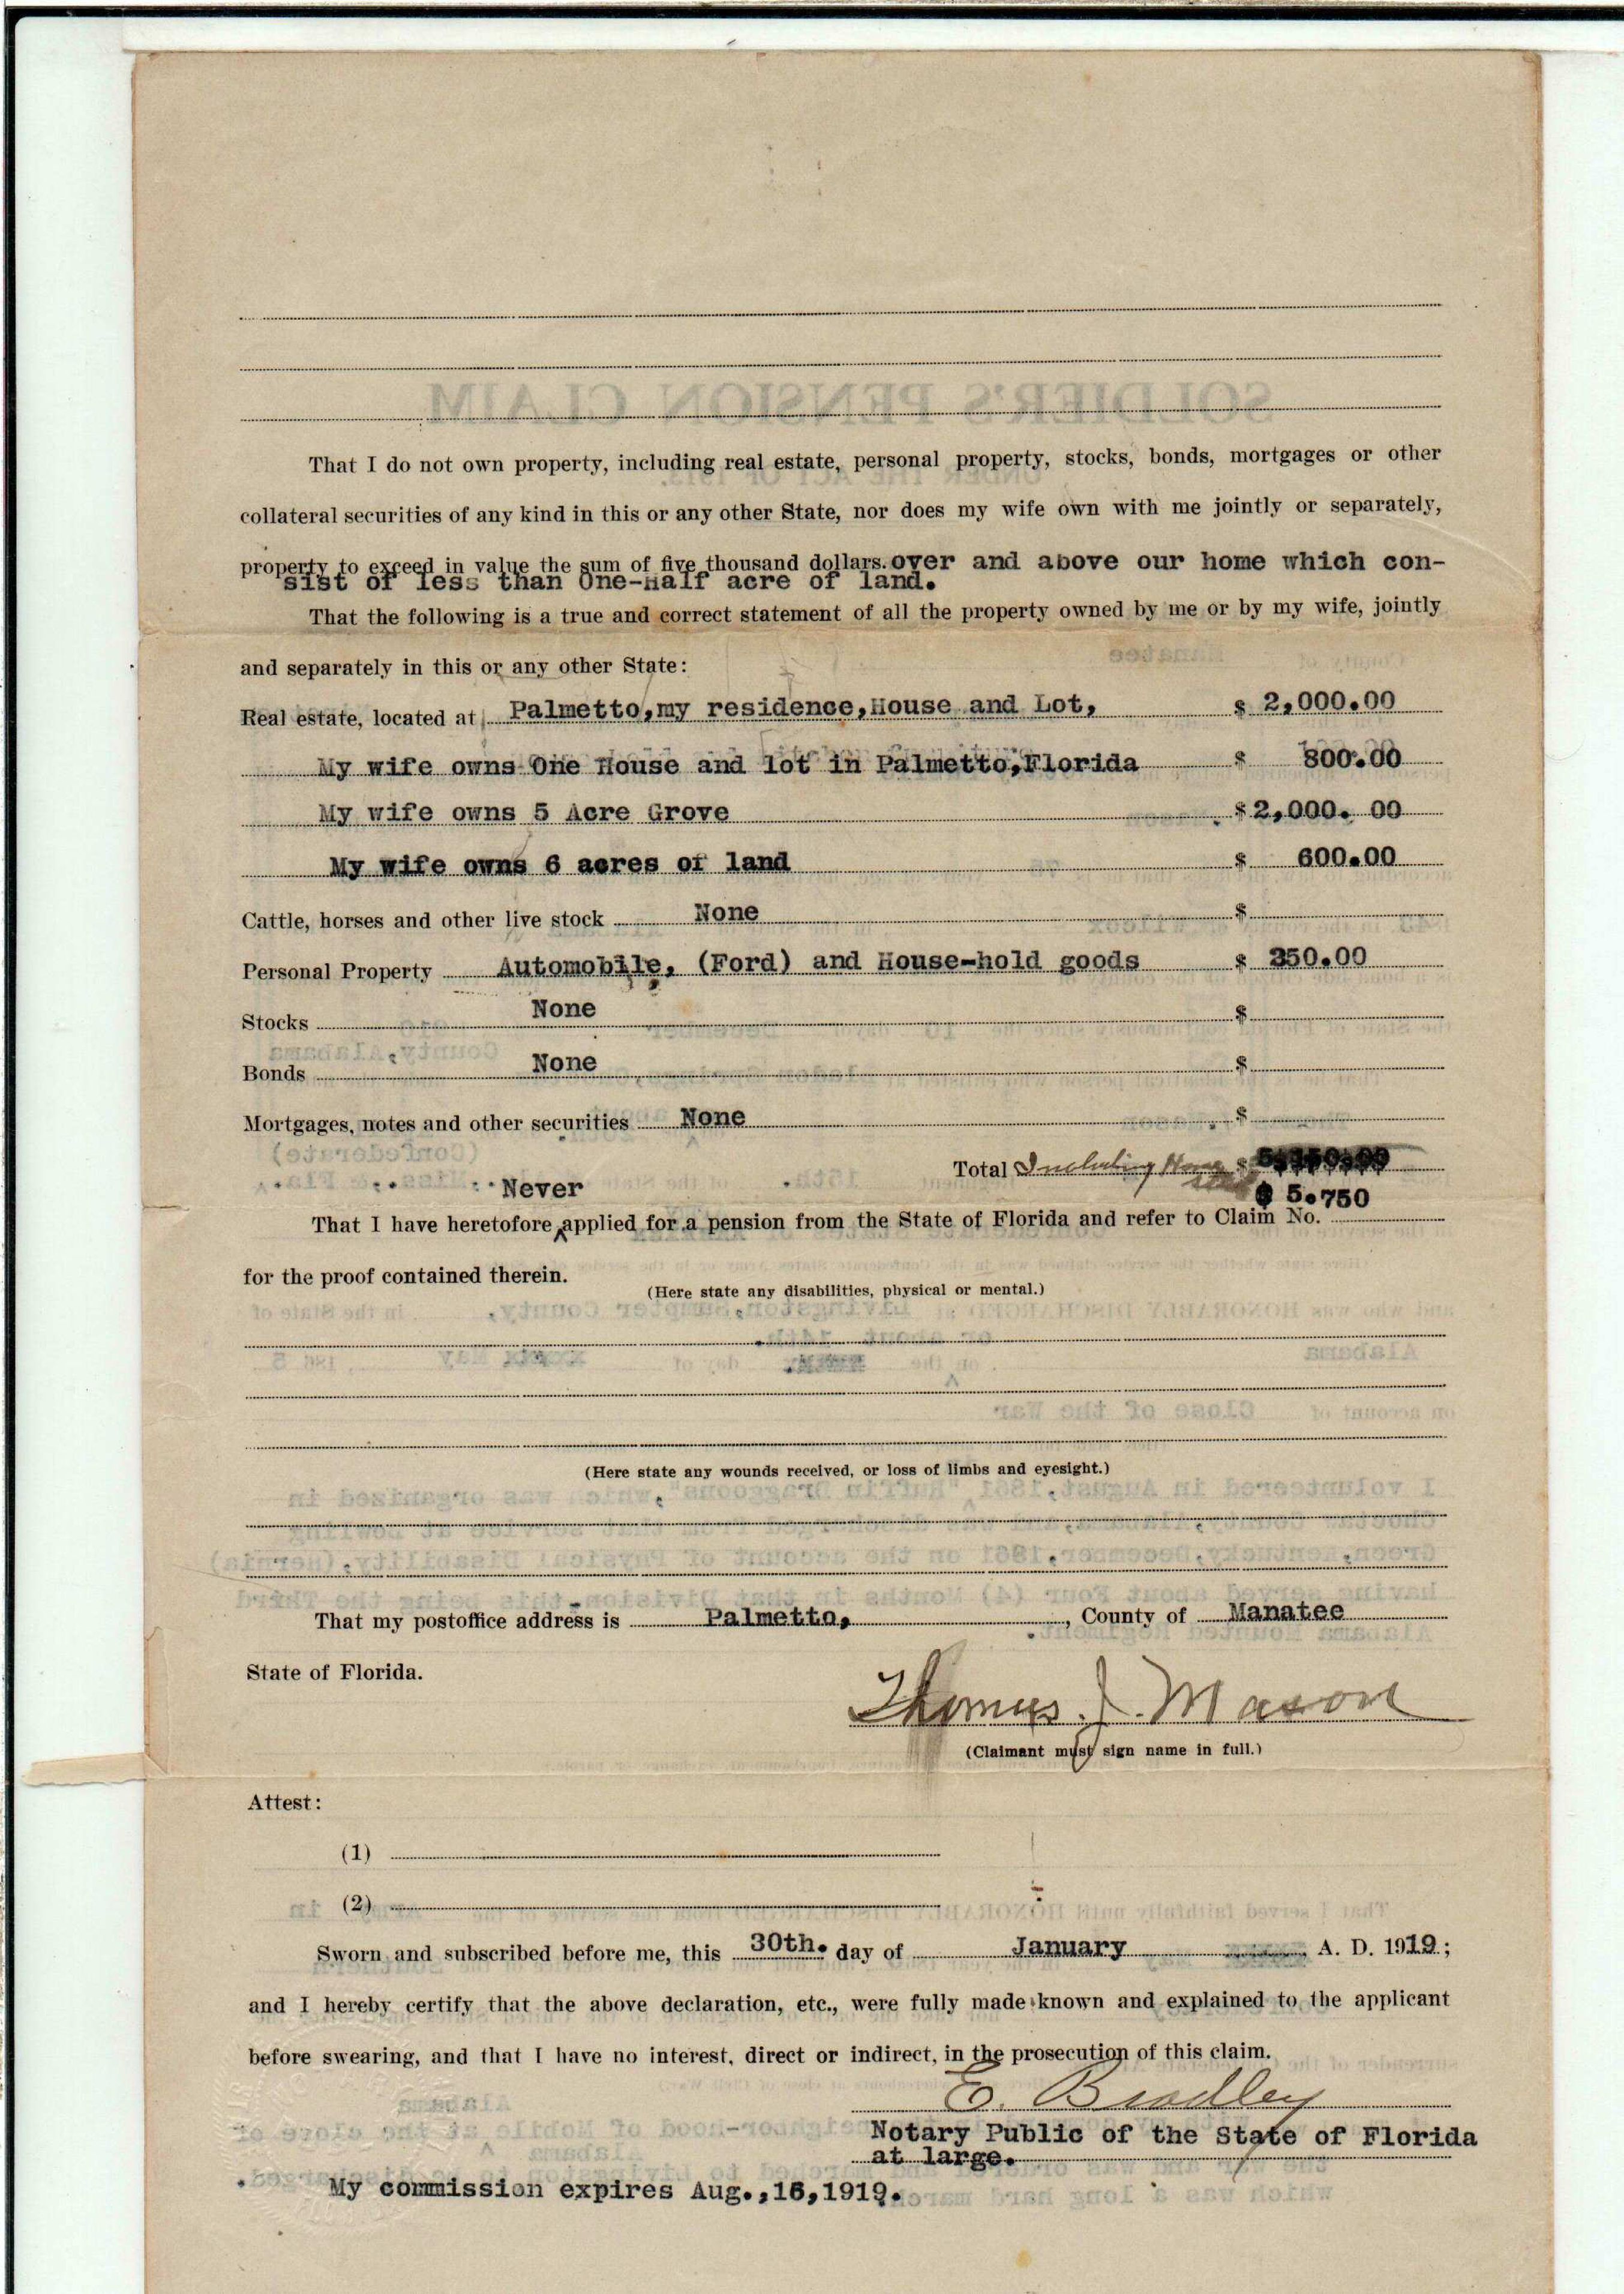 That I do not own property, including real estate, personal property, stocks, bonds, mortgages or other
collateral securities of any kind in this or any other State, nor does my wife own with me jointly or separately,
property to exceed in value the sum of five thousand dollars. over and above our home which con-
sist of less than One-Half acre of land.
That the following is a true and correct statement of all the property owned by me or by my wife, jointly
and separately in this or any other State:
Real estate, located at Palmetto,my residence,House and Lot, $ 2,000.00
My wife owns One House and lot in Palmetto,Florida $ 800.00
My wife owns 5 Acre Grove $ 2,000. 00
My wife owns 6 acres of land $ 600.00
Cattle, horses and other live stock None $
Personal Property Automobile, (Ford) and House-hold goods $ 350.00
Stocks None $
Bonds None $
Mortgages, notes and other securities None $
Total Including Home $
$ 5.750
Never
That I have heretofore ‸applied for a pension from the State of Florida and refer to Claim No.
for the proof contained therein.
(Here state any disabilities, physical or mental.)
(Here state any wounds received, or loss of limbs and eyesight.)
That my postoffice address is Palmetto, , County of Manatee
State of Florida.
Thomas. J. Mason
(Claimant must sign name in full.)
Attest:
(1)
(2)
Sworn and subscribed before me, this 30th. day of January A. D. 1919;
and I hereby certify that the above declaration, etc., were fully made known and explained to the applicant
before swearing, and that I have no interest, direct or indirect, in the prosecution of this claim.
E. Bradley
Notary Public of the State of Florida
at large.
My commission expires Aug.,16,1919.